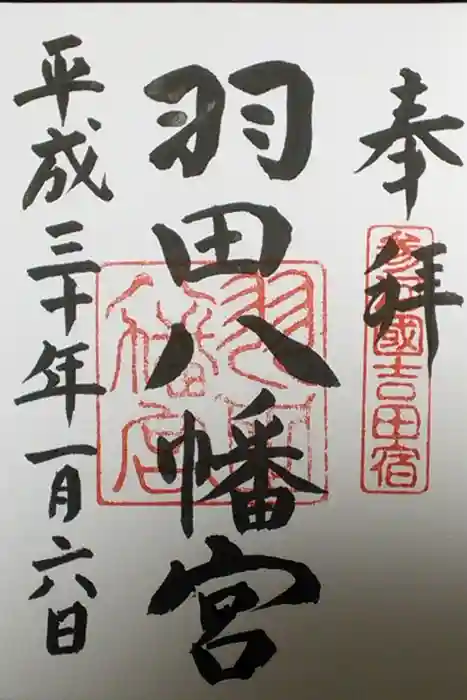 奉拝
参河國吉田宿
羽田八幡宮
羽田八幡宮
平成三十年一月六日